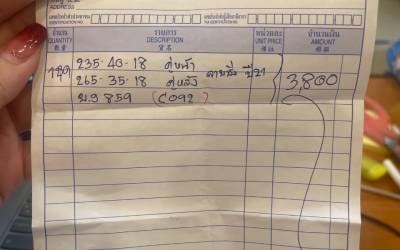 ADDRESS
เลขประจำตัวประชาชน
IDENTIFICATION NO.
เลขประจำตัวผู้เสียภาษีอากร
TAX IDENTIFICATION NO.
จำนวน รายการ หน่วยละ จำนวนเงิน
QUANTITY DESCRIPTION UNIT PRICE AMOUNT
數量 貨名
1ชุด 235-40-18 คู่หน้า
265-35-18 คู่หลัง ปี 21 3,800
859 (C092)